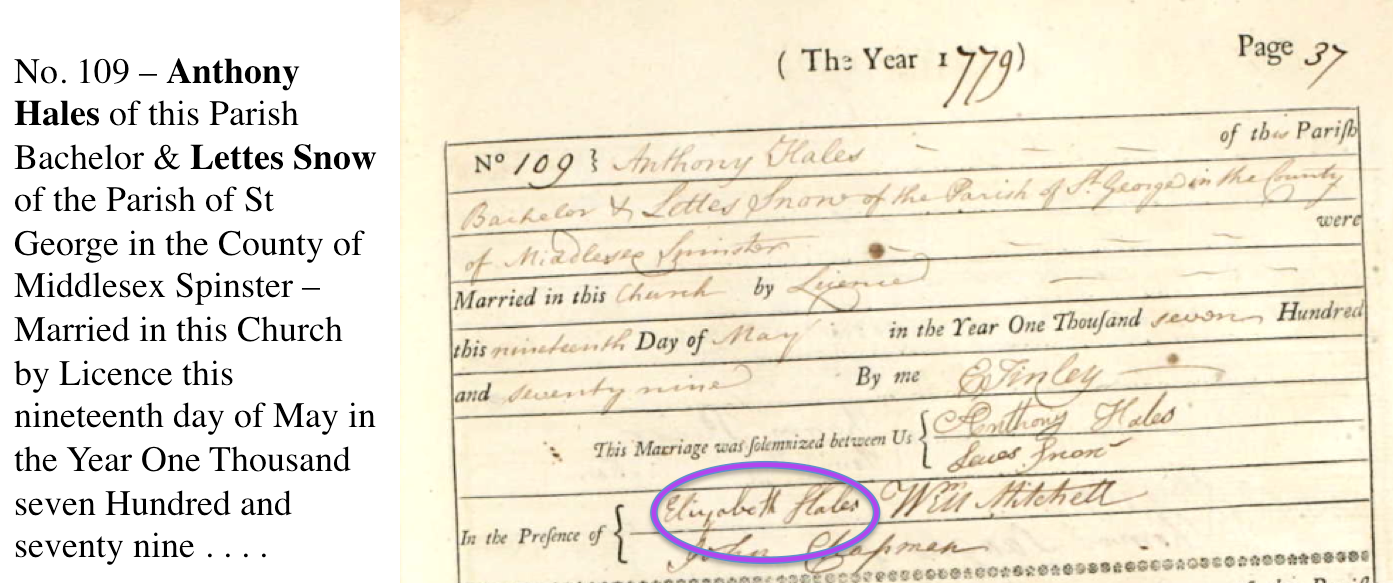 No. 109 – Anthony
Hales of this Parish
Bachelor & Lettes Snow
of the Parish of St
George in the County of
Middlesex Spinster –
Married in this Church
by Licence this
nineteenth day of May in
the Year One Thousand
seven Hundred and
seventy nine . . . .
( The Year 1779)
Page 37
No 109 } Anthony Hales – – – – of this Pariſh
Bachelor & Lettes Snow of the Parish of St. George in the County
of Middlesex Spinster – – – – were
Married in this Church by Licence – – –
this nineteenth Day of May in the Year One Thouſand seven Hundred
and seventy nine By me E Tinley
This Marriage was ſolemnized between Us { Anthony Hales
Snow
In the Preſence of { Elizabeth Hales Wm Mitchell
John Chapman